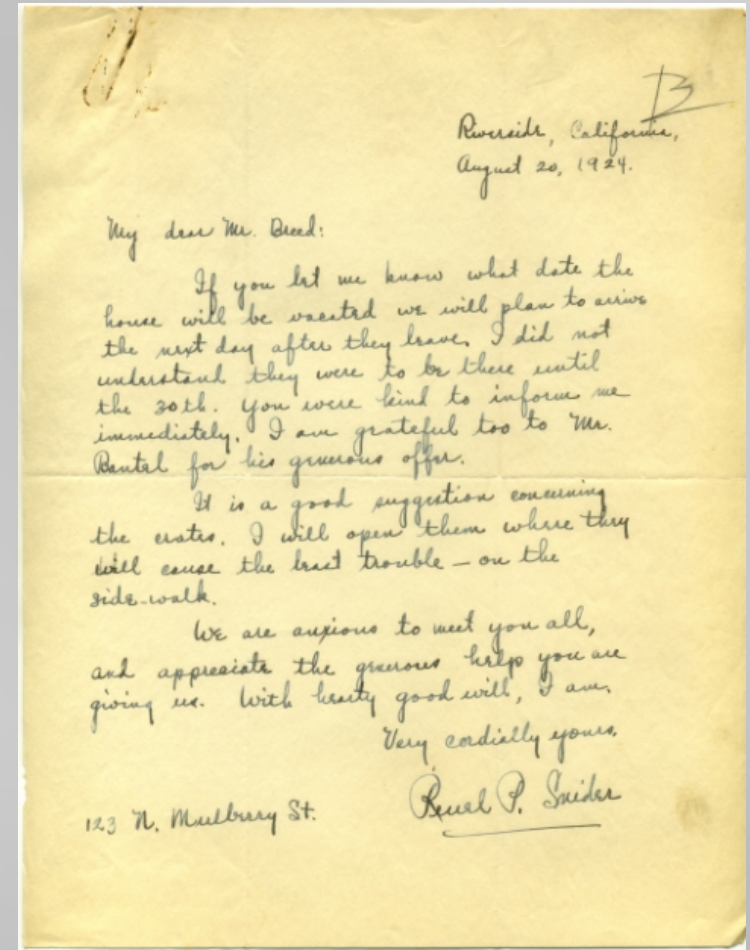 B
Riverside, California,
August 20, 1924.
My dear Mr. Breed:
If you let me know what date the
house will be vacated we will plan to arrive
the next day after they leave. I did not
understand they were to be there until
the 30th. You were kind to inform me
immediately. I am grateful too to Mr.
Bantel for his generous offer.
It is a good suggestion concerning
the crates. I will open them where they
will cause the least trouble — on the
side-walk.
We are anxious to meet you all,
and appreciate the generous help you are
giving us. With hearty good will, I am.
Very cordially yours.
Reuel P. Snider
123 N. Mulberry St.